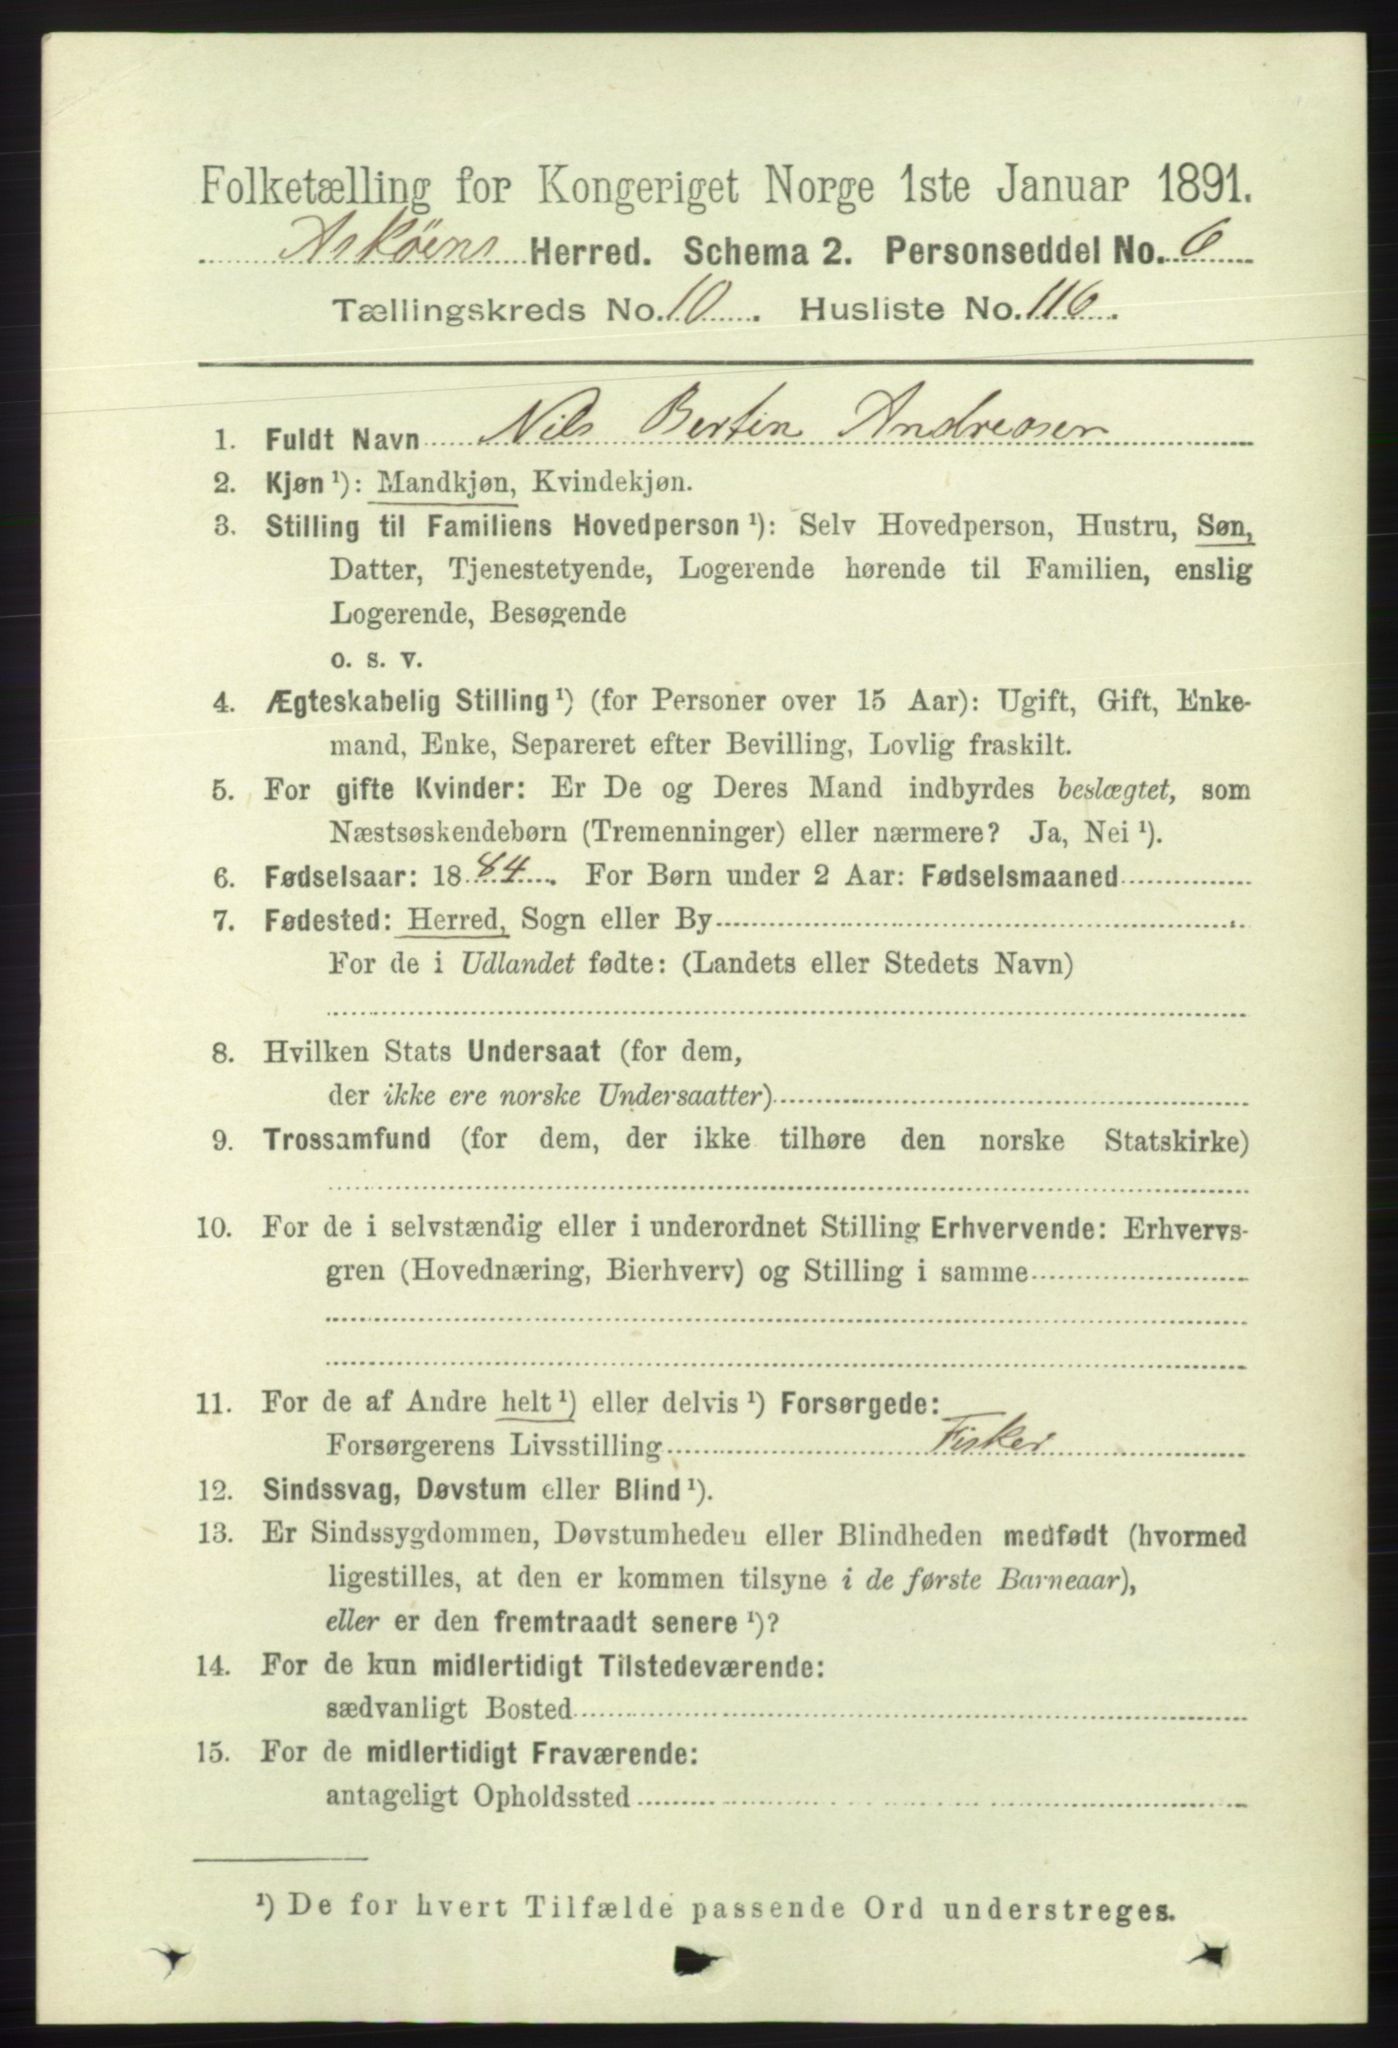 Folketælling for Kongeriget Norge 1ste Januar 1891.
Askøens Herred. Schema 2. Personseddel No. 6
Tællingskreds No. 10. Husliste No. 116.
1. Fuldt Navn Nils Bertin Andreasen
2. Kjøn ¹): Mandkjøn, Kvindekjøn.
3. Stilling til Familiens Hovedperson ¹): Selv Hovedperson, Hustru, Søn,
Datter, Tjenestetyende, Logerende hørende til Familien, enslig
Logerende, Besøgende
o. s. v.
4. Ægteskabelig Stilling ¹) (for Personer over 15 Aar): Ugift, Gift, Enke-
mand, Enke, Separeret efter Bevilling, Lovlig fraskilt.
5. For gifte Kvinder: Er De og Deres Mand indbyrdes beslægtet, som
Næstsøskendebørn (Tremenninger) eller nærmere? Ja, Nei ¹).
6. Fødselsaar: 1884. For Børn under 2 Aar: Fødselsmaaned
7. Fødested: Herred, Sogn eller By
For de i Udlandet fødte: (Landets eller Stedets Navn)
8. Hvilken Stats Undersaat (for dem,
der ikke ere norske Undersaatter)
9. Trossamfund (for dem, der ikke tilhøre den norske Statskirke)
10. For de i selvstændig eller i underordnet Stilling Erhvervende: Erhvervs-
gren (Hovednæring, Bierhverv) og Stilling i samme
11. For de af Andre helt ¹) eller delvis ¹) Forsørgede:
Forsørgerens Livsstilling Fisker
12. Sindssvag, Døvstum eller Blind ¹).
13. Er Sindssygdommen, Døvstumheden eller Blindheden medfødt (hvormed
ligestilles, at den er kommen tilsyne i de første Barneaar),
eller er den fremtraadt senere ¹)?
14. For de kun midlertidigt Tilstedeværende:
sædvanligt Bosted
15. For de midlertidigt Fraværende:
antageligt Opholdssted
¹) De for hvert Tilfælde passende Ord understreges.